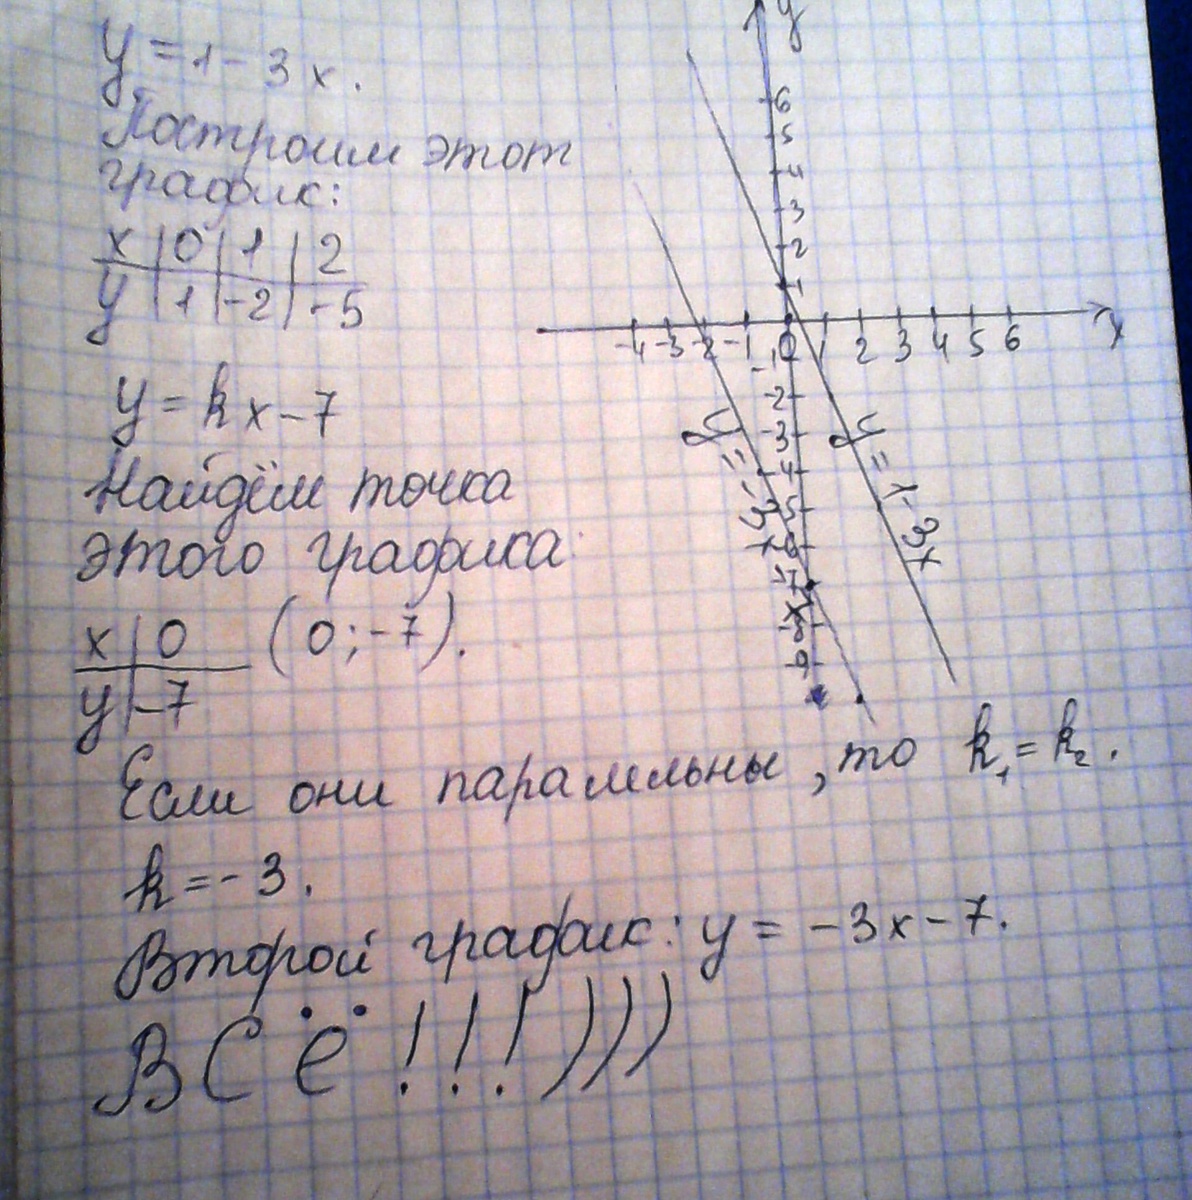 y = 1 - 3x.
Построим этот
график:
x | 0 | 1 | 2
y | 1 | -2 | -5
y = kx - 7
Найдём точка
этого графика
x | 0 (0; -7).
y | -7
Если они паралельны, то k₁ = k₂.
k = -3.
Второй график: y = -3x - 7.
ВСЁ!!!)))
y
6
5
4
3
2
1
-4 -3 -2 -1 0 1 2 3 4 5 6 x
-1
-2
-3
-4
-5
-6
-7
-8
-9
y = 1 - 3x